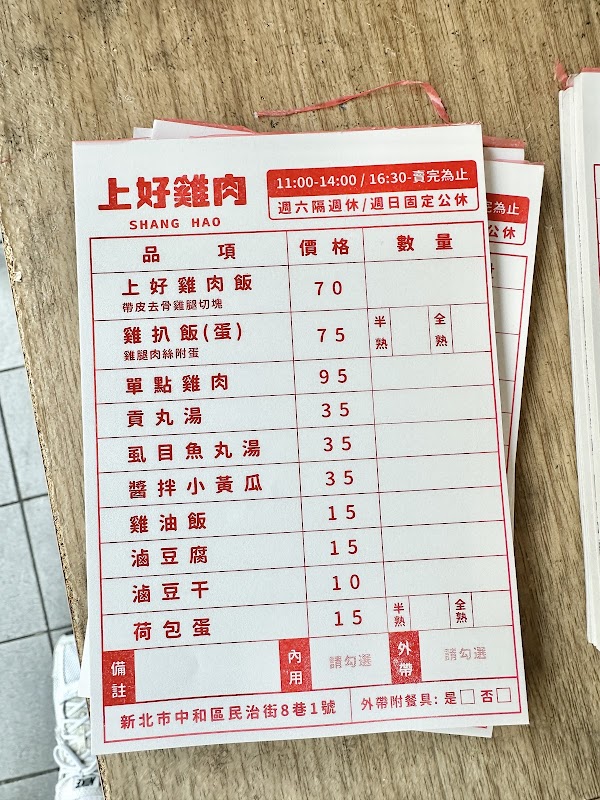 上好雞肉
SHANG HAO
11:00-14:00 / 16:30-賣完為止
週六隔週休/週日固定公休
品項 價格 數量
上好雞肉飯 70
帶皮去骨雞腿切塊
雞扒飯(蛋) 75 半熟 全熟
雞腿肉絲附蛋
單點雞肉 95
貢丸湯 35
虱目魚丸湯 35
醬拌小黃瓜 35
雞油飯 15
滷豆腐 15
滷豆干 10
荷包蛋 15 半熟 全熟
備註 內用 請勾選 外帶 請勾選
新北市中和區民治街8巷1號 外帶附餐具: 是□ 否□
完為止
公休